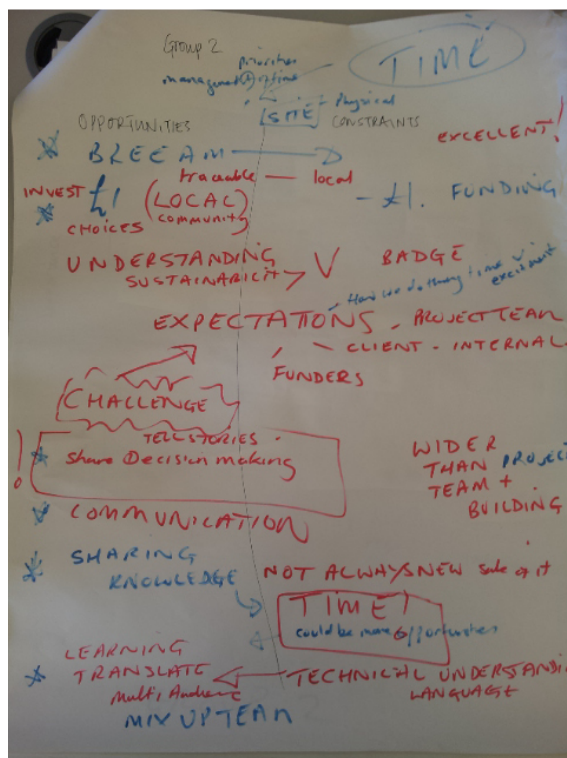 Group 2
priorities
management of time
TIME
SITE Physical
OPPORTUNITIES
CONSTRAINTS
EXCELLENT!
BREEAM
traceable — local
INVEST £1 (LOCAL)
community
CHOICES
- £1. FUNDING
UNDERSTANDING
V BADGE
How we do things time v
excitement
EXPECTATIONS - PROJECT TEAM
- CLIENT - INTERNAL
FUNDERS
CHALLENGE
TELL STORIES
Share Decision making
!
WIDER
THAN PROJEC
TEAM +
BUILDING
COMMUNICATION
SHARING
KNOWLEDGE
NOT ALWAYS NEW sake of it
TIME!
could be more opportunities
LEARNING
TRANSLATE
Multi Audience
TECHNICAL UNDERSTANDI
LANGUAGE
MIX UP TEAM